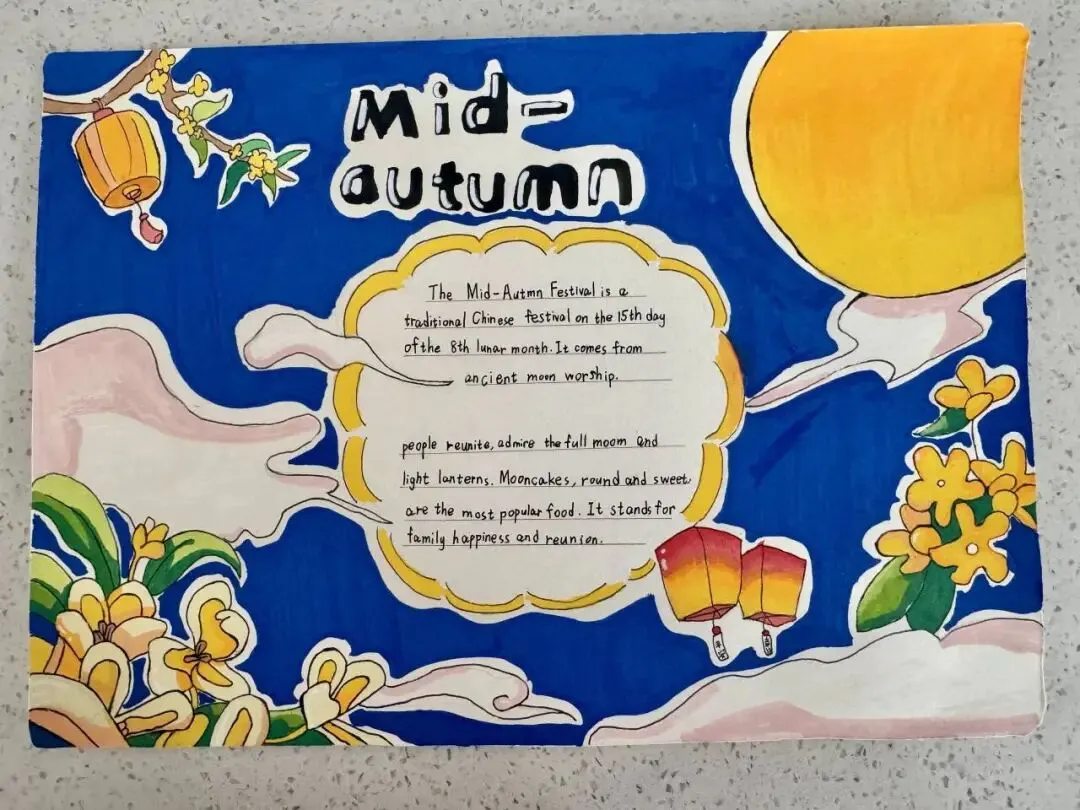 Mid-
autumn
The Mid-Autmn Festival is a
traditional Chinese festival on the 15th day
of the 8th lunar month. It comes from
ancient moon worship.
people reunite, admire the full moom and
light lanterns. Mooncakes, round and sweet,
are the most popular food. It stands for
family happiness and reunion.